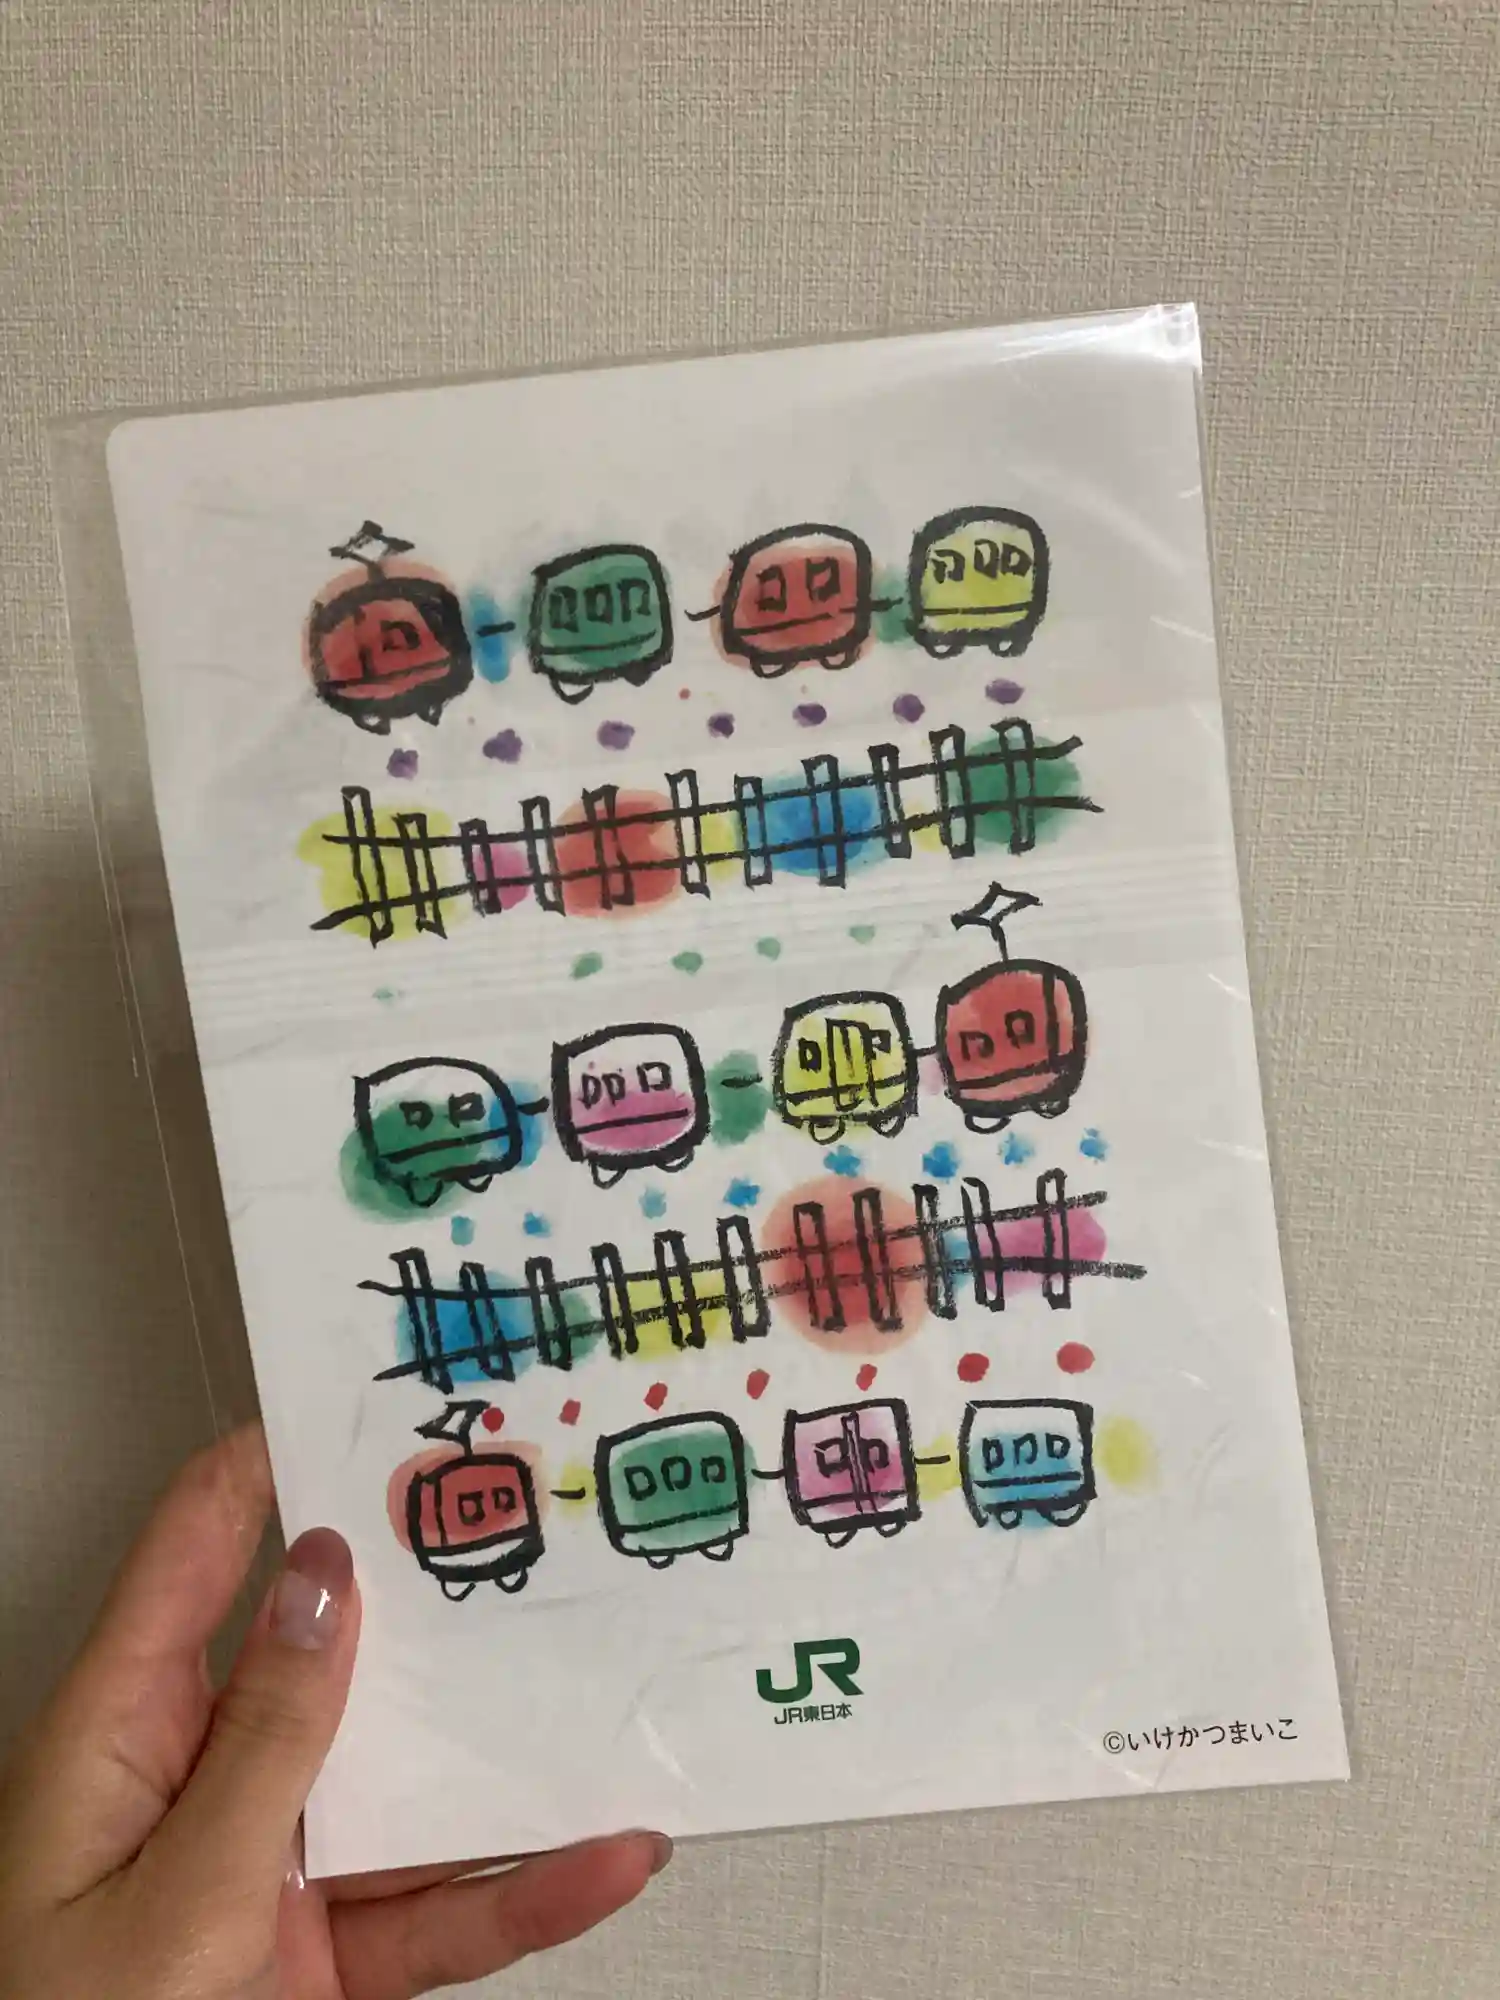 JR
JR東日本
©いけかつまいこ